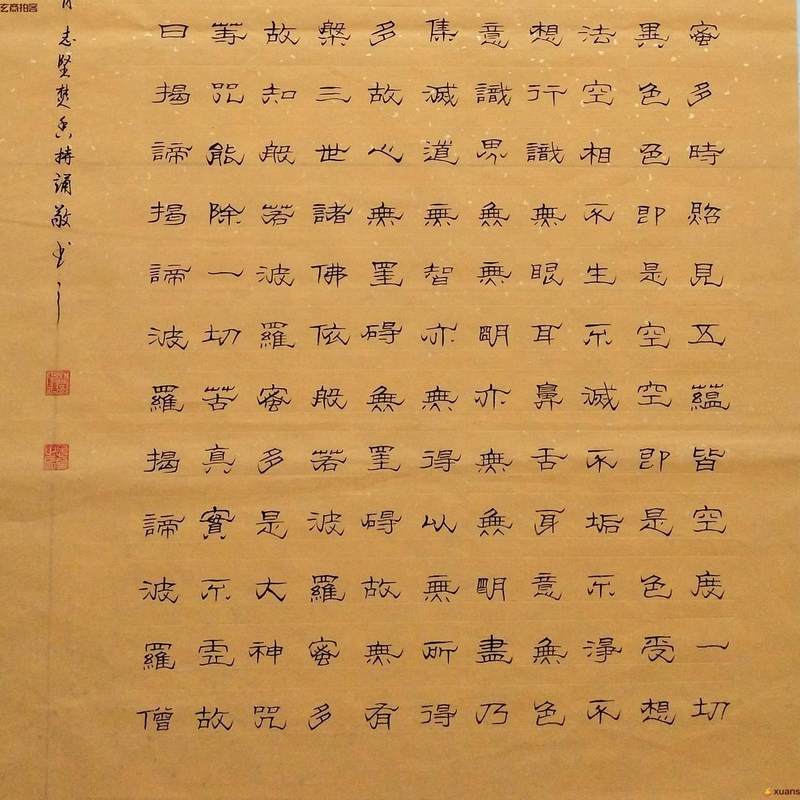 蜜多時照見五蘊皆空度一切
異色色即是空空即是色受想
法空相不生不滅不垢不淨不
想行識無眼耳鼻舌身意無色
意識界無無明亦無無明盡乃
集滅道無智亦無得以無所得
多故心無罣碍無罣碍故無有
槃三世諸佛依般若波羅蜜多
故知般若波羅蜜多是大神咒
等咒能除一切苦真實不虛故
曰揭諦揭諦波羅揭諦波羅僧
月志堅焚香持誦敬書之
玄商拍客
xuans